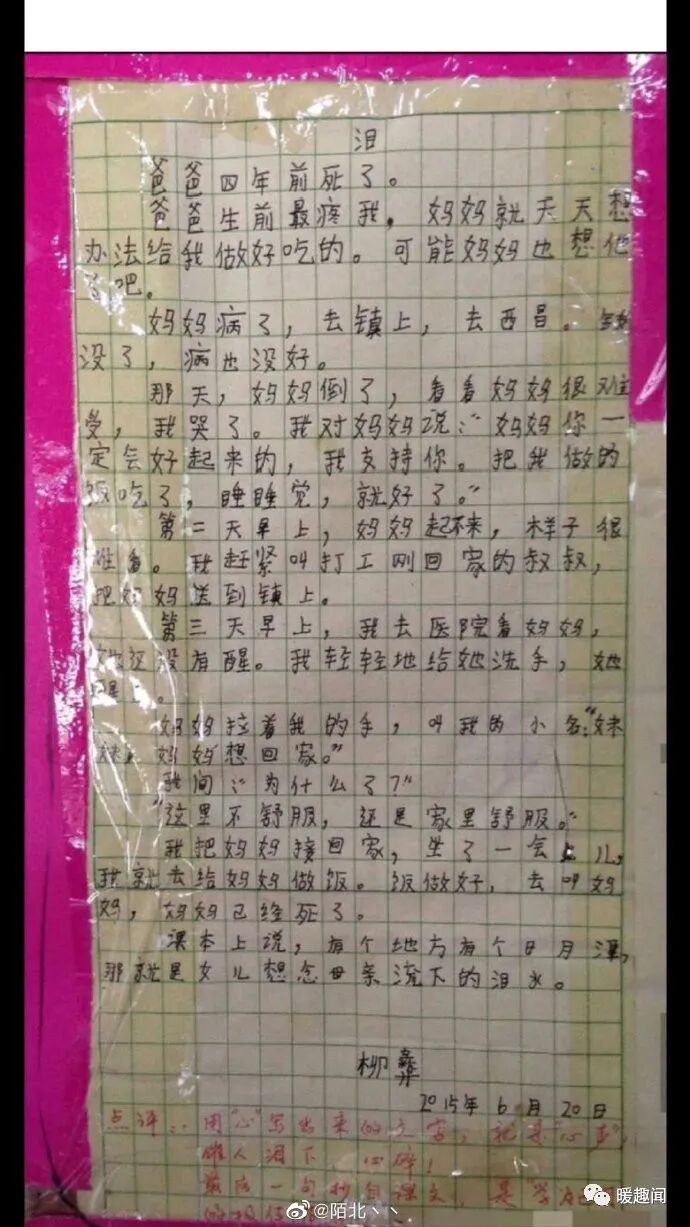 泪
爸爸四年前死了。
爸爸生前最疼我,妈妈就天天想
办法给我做好吃的。可能妈妈也想他
了吧。
妈妈病了,去镇上,去西昌。钱
没了,病也没好。
那天,妈妈倒了,看看妈妈很难
受,我哭了。我对妈妈说:“妈妈你一
定会好起来的,我支持你。把我做的
饭吃了,睡睡觉,就好了。”
第二天早上,妈妈起不来,样子很
难看。我赶紧叫打工刚回家的叔叔,
把妈妈送到镇上。
第三天早上,我去医院看妈妈,
她还没有醒。我轻轻地给她洗手,她
醒了。
妈妈拉着我的手,叫我的小名:“妹
妹,妈妈想回家。”
我问:“为什么了?”
“这里不舒服,还是家里舒服。”
我把妈妈接回家,坐了一会儿,
我就去给妈妈做饭。饭做好,去叫妈
妈,妈妈已经死了。
课本上说,有个地方有个日月潭,
那就是女儿想念母亲流下的泪水。
柳彝
2015年6月20日
点评:用“心”写出来的文字,就是“心声”,
催人泪下,心碎!
最后一句抄自课文,是“学
@陌北丶丶
暖趣闻